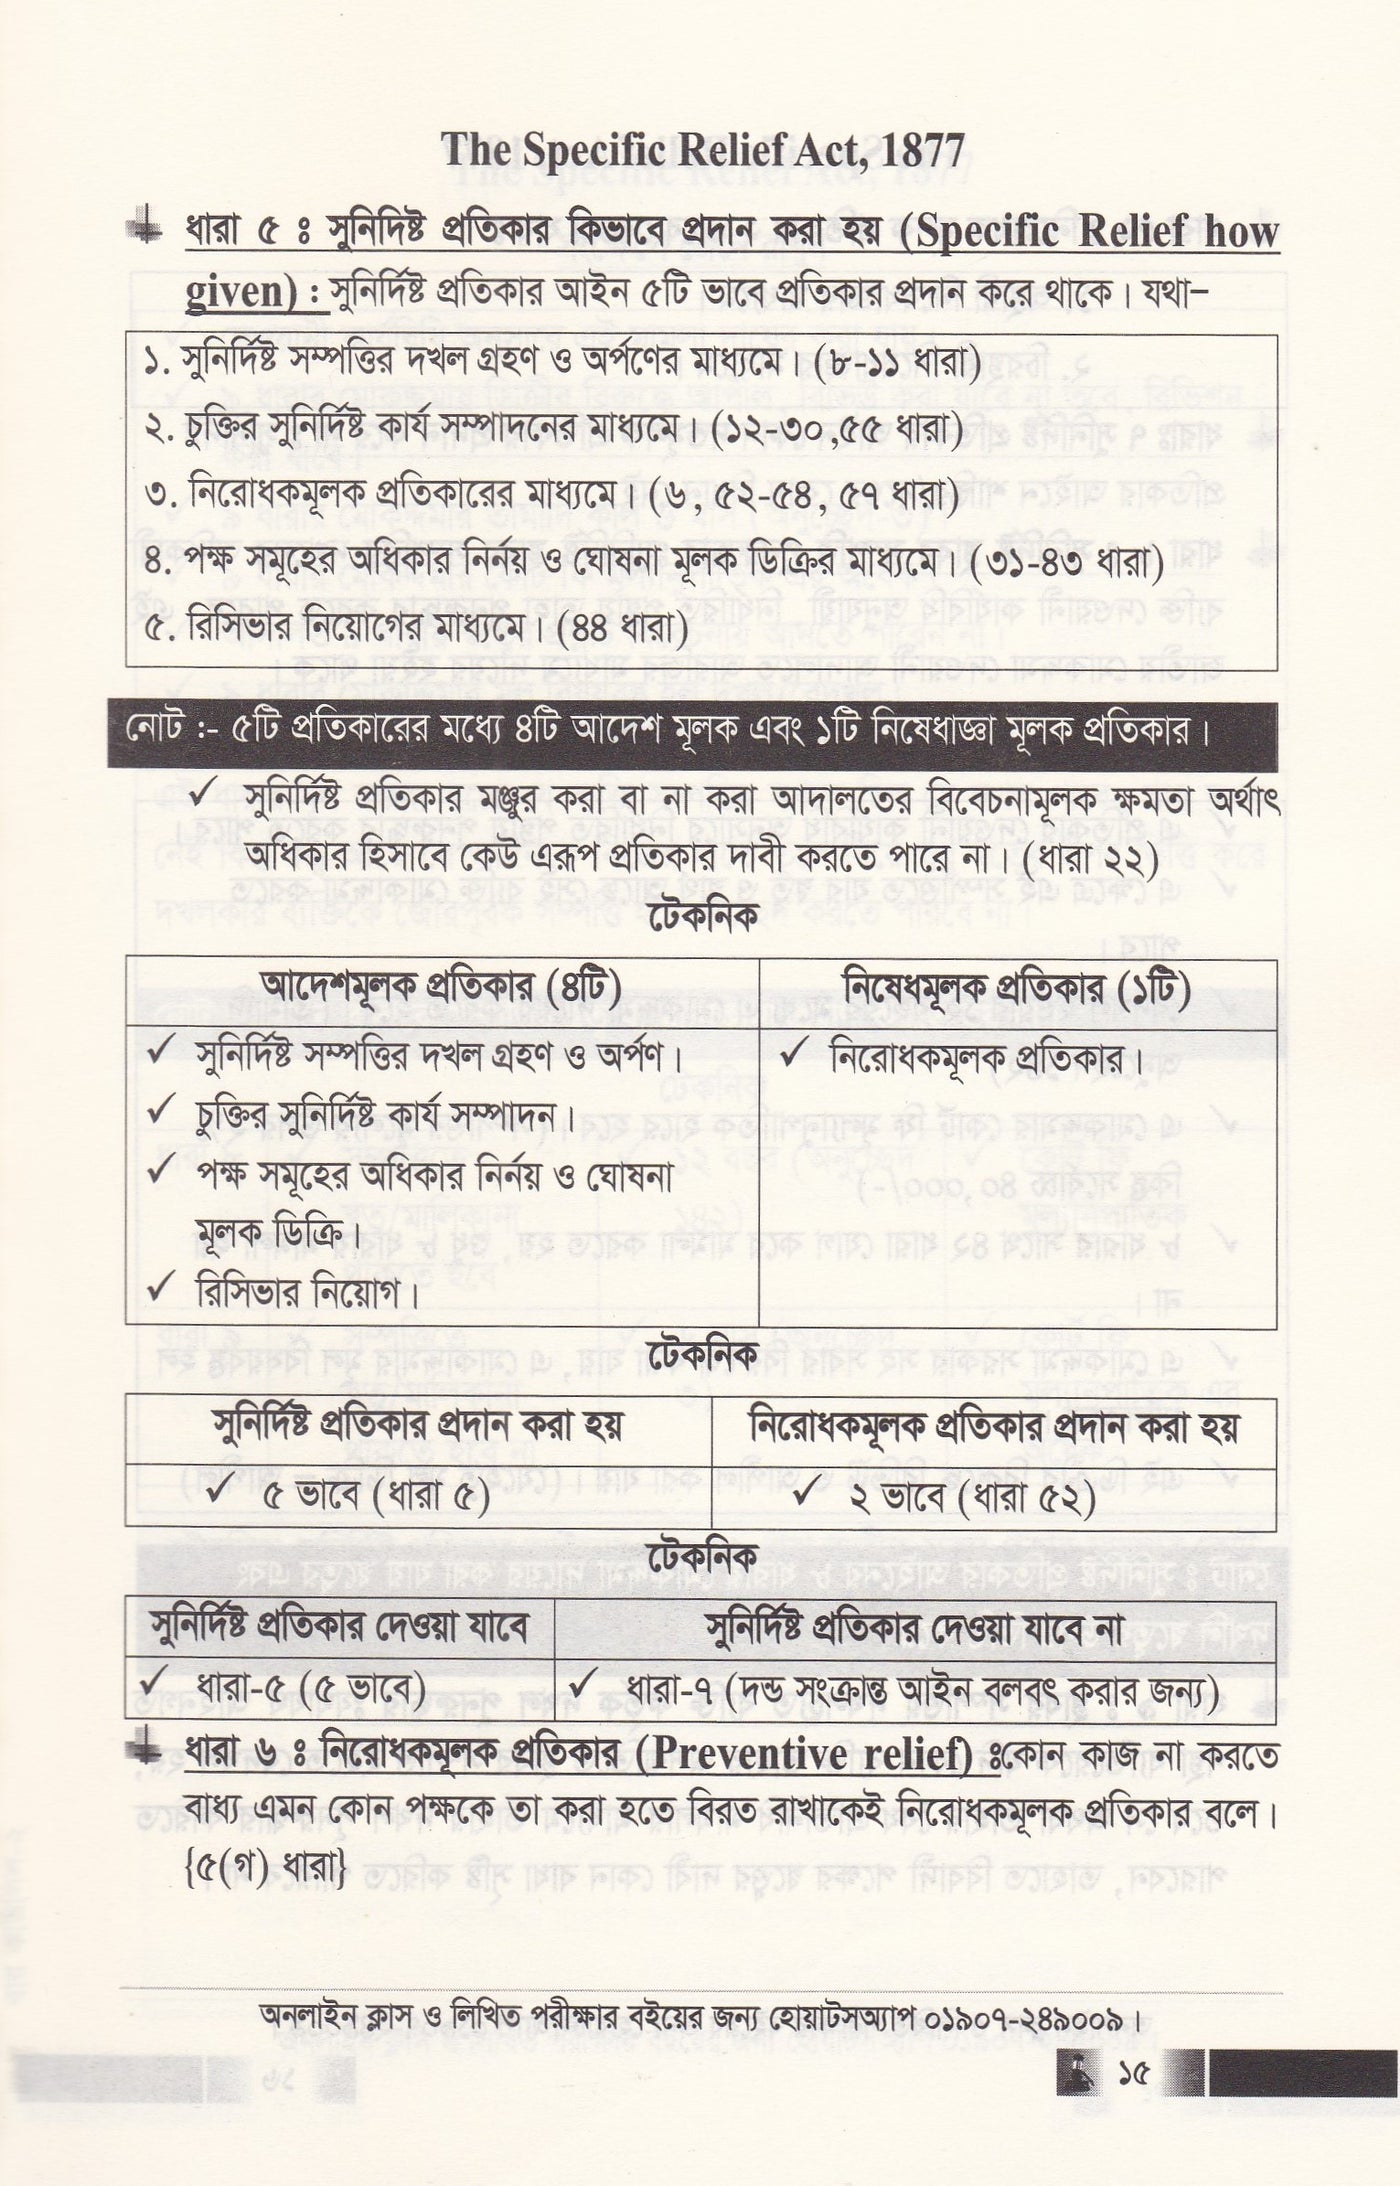 The Specific Relief Act, 1877
ধারা ৫ ঃ সুনিদিষ্ট প্রতিকার কিভাবে প্রদান করা হয় (Specific Relief how
given) : সুনির্দিষ্ট প্রতিকার আইন ৫টি ভাবে প্রতিকার প্রদান করে থাকে। যথা–
১. সুনির্দিষ্ট সম্পত্তির দখল গ্রহণ ও অর্পণের মাধ্যমে। (৮-১১ ধারা)
২. চুক্তির সুনির্দিষ্ট কার্য সম্পাদনের মাধ্যমে। (১২-৩০,৫৫ ধারা)
৩. নিরোধকমূলক প্রতিকারের মাধ্যমে। (৬, ৫২-৫৪, ৫৭ ধারা)
৪. পক্ষ সমূহের অধিকার নির্নয় ও ঘোষনা মূলক ডিক্রির মাধ্যমে। (৩১-৪৩ ধারা)
৫. রিসিভার নিয়োগের মাধ্যমে। (৪৪ ধারা)
নোট :- ৫টি প্রতিকারের মধ্যে ৪টি আদেশ মূলক এবং ১টি নিষেধাজ্ঞা মূলক প্রতিকার।
✓ সুনির্দিষ্ট প্রতিকার মঞ্জুর করা বা না করা আদালতের বিবেচনামূলক ক্ষমতা অর্থাৎ
অধিকার হিসাবে কেউ এরূপ প্রতিকার দাবী করতে পারে না। (ধারা ২২)
টেকনিক
আদেশমূলক প্রতিকার (৪টি) নিষেধমূলক প্রতিকার (১টি)
✓ সুনির্দিষ্ট সম্পত্তির দখল গ্রহণ ও অর্পণ। ✓ নিরোধকমূলক প্রতিকার।
✓ চুক্তির সুনির্দিষ্ট কার্য সম্পাদন।
✓ পক্ষ সমূহের অধিকার নির্নয় ও ঘোষনা
মূলক ডিক্রি।
✓ রিসিভার নিয়োগ।
টেকনিক
সুনির্দিষ্ট প্রতিকার প্রদান করা হয় নিরোধকমূলক প্রতিকার প্রদান করা হয়
✓ ৫ ভাবে (ধারা ৫) ✓ ২ ভাবে (ধারা ৫২)
টেকনিক
সুনির্দিষ্ট প্রতিকার দেওয়া যাবে সুনির্দিষ্ট প্রতিকার দেওয়া যাবে না
✓ ধারা-৫ (৫ ভাবে) ✓ ধারা-৭ (দন্ড সংক্রান্ত আইন বলবৎ করার জন্য)
ধারা ৬ ঃ নিরোধকমূলক প্রতিকার (Preventive relief) ঃকোন কাজ না করতে
বাধ্য এমন কোন পক্ষকে তা করা হতে বিরত রাখাকেই নিরোধকমূলক প্রতিকার বলে।
{৫(গ) ধারা}
অনলাইন ক্লাস ও লিখিত পরীক্ষার বইয়ের জন্য হোয়াটসঅ্যাপ ০১৯০৭-২৪৯০০৯।
১৫